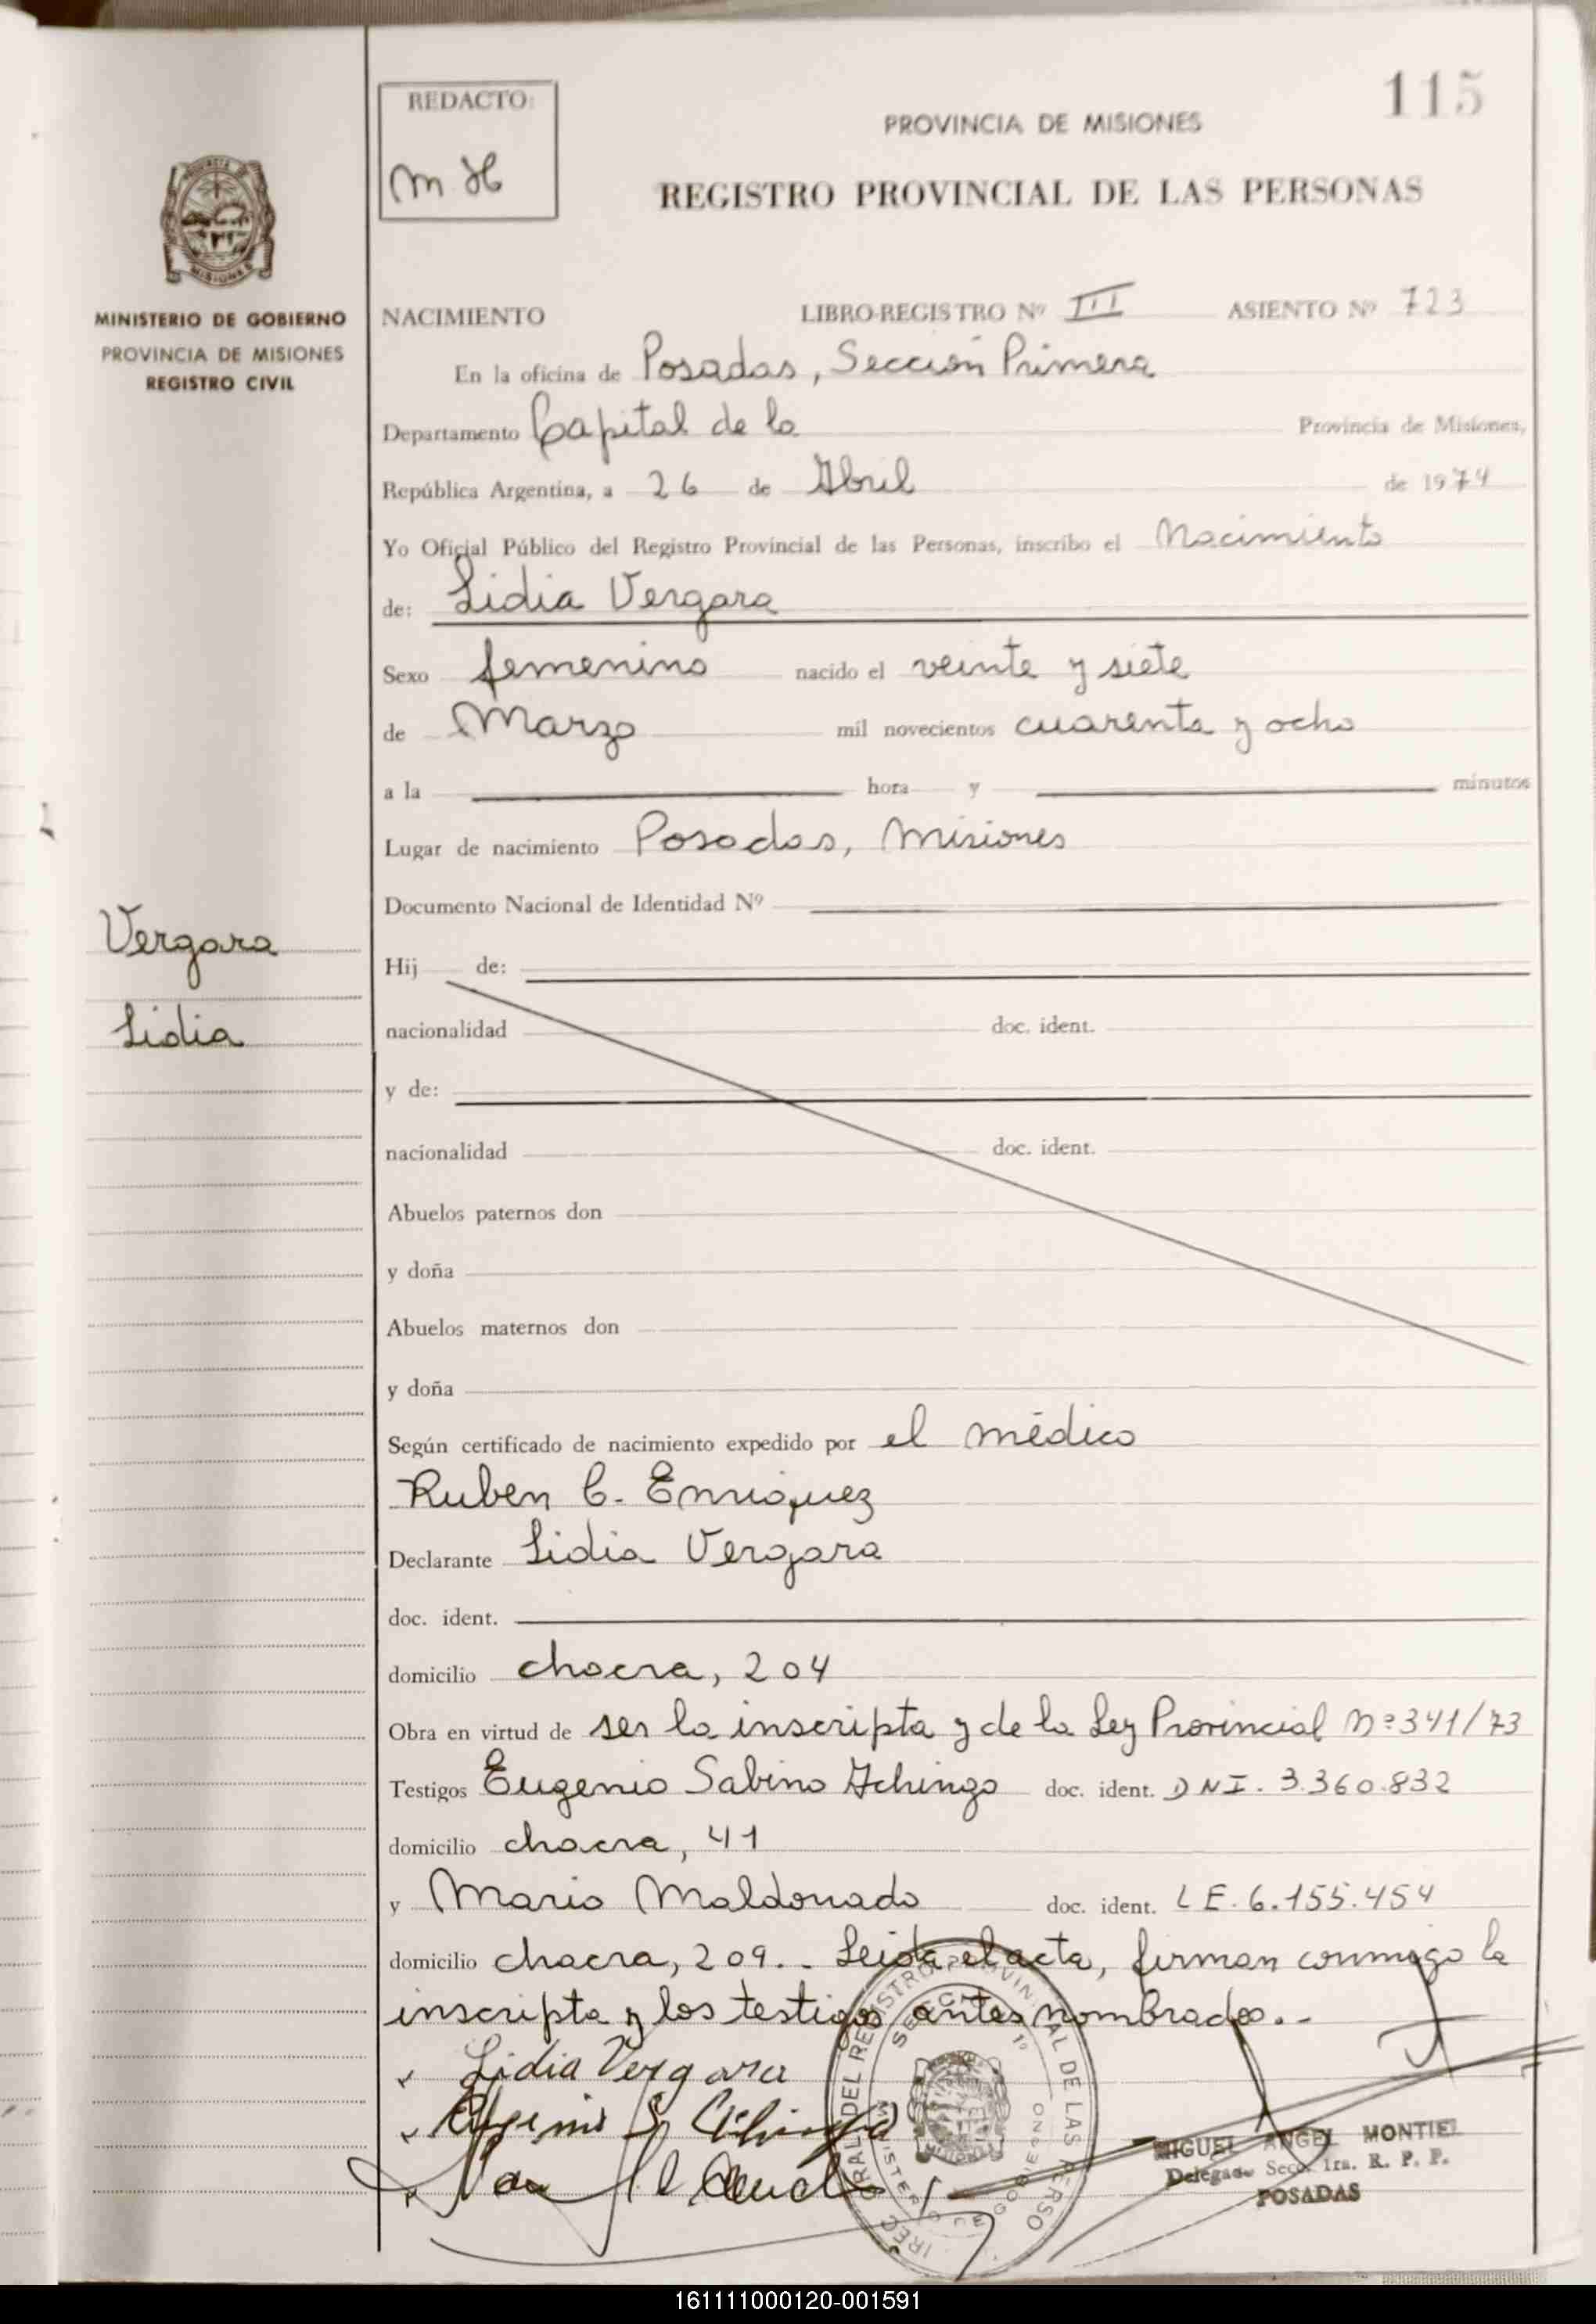 115
REDACTO:
PROVINCIA DE MISIONES
REGISTRO PROVINCIAL DE LAS PERSONAS
MISIONES
MINISTERIO DE GOBIERNO
PROVINCIA DE MISIONES
REGISTRO CIVIL
NACIMIENTO LIBRO-REGISTRO Nº III ASIENTO Nº 723
En la oficina de Posadas, Sección Primera
Departamento Capital de la Provincia de Misiones,
República Argentina, a 26 de Abril de 1974
Yo Oficial Público del Registro Provincial de las Personas, inscribo el Nacimiento
de: Lidia Vergara
Sexo femenino nacido el veinte y siete
de Marzo mil novecientos cuarenta y ocho
a la hora y minutos
Lugar de nacimiento Posadas, Misiones
Documento Nacional de Identidad Nº
Vergara
Lidia
Hij de:
nacionalidad doc. ident.
y de:
nacionalidad doc. ident.
Abuelos paternos don
y doña
Abuelos maternos don
y doña
Según certificado de nacimiento expedido por el médico
Ruben C. Enriquez
Declarante Lidia Vergara
doc. ident.
domicilio chacra, 204
Obra en virtud de ser la inscripta y de la Ley Provincial Nº 341/73
Testigos Eugenio Sabino Achingo doc. ident. DNI. 3.360.832
domicilio chacra, 41
y Mario Maldonado doc. ident. LE. 6.155.454
domicilio chacra, 209.- Leida el acta, firman conmigo la
inscripta y los testigos antes nombrados.-
Lidia Vergara
MIGUEL ANGEL MONTIEL
Delegado Secc. 1ra. R. P. P.
POSADAS
161111000120-001591